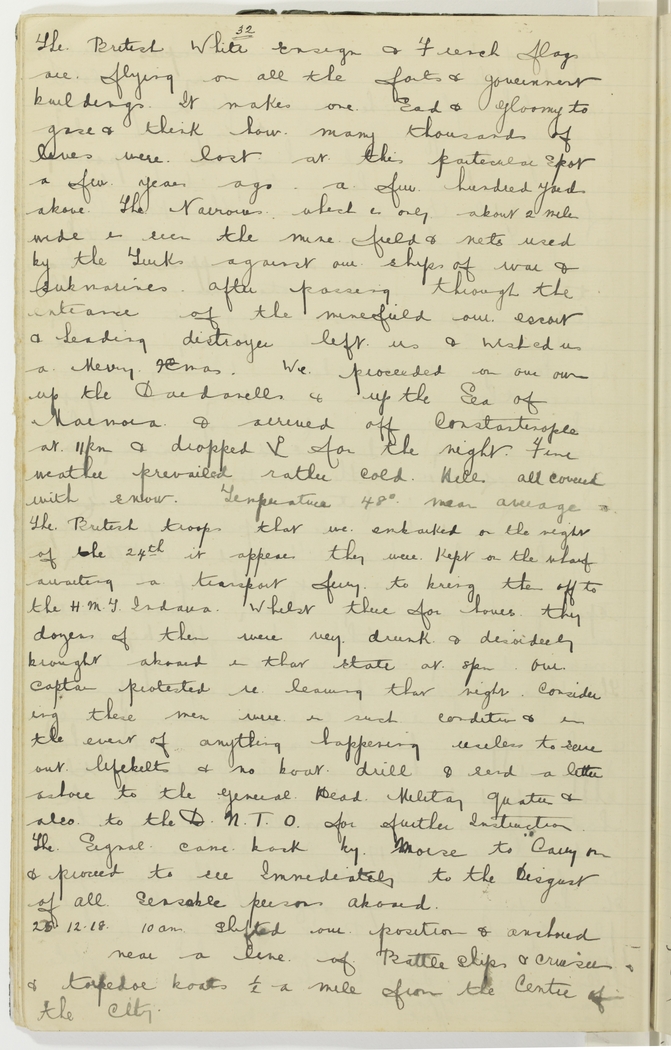 32
The British White Ensign & French flags
are flying on all the forts & government
buildings. It makes one Sad & gloomy to
gaze & think how many thousands of
lives were lost at this particular Spot
a few years ago. a few hundred yards
above The Narrows which is only about 2 mile
wide is seen the mine field & nets used
by the Turks against our ships of war &
Submarines. after passing through the
entrance of the minefield our escort
a Leading distroyer left us & wished us
a Merry Xmas. We proceeded on our own
up the Dardanells & up the Sea of
Marmora & arrived off Constantinople
at 11pm & dropped ⚓ for the night. Fine
weather prevailed rather cold. Hills all covered
with snow. Temperature 48° mean average
The British troops that we embarked on the night
of the 24th it appears they were Kept on the wharf
awaiting a transport ferry to bring them off to
the H.M.T. Indarra. Whilst there for hours they
dozens of them were very drunk & disorderly
brought aboard in that state at 8pm our
Captain protested re leaving that night. Consider
ing these men were in such condition & in
the event of anything happening useless to serve
out lifebelts & no boat drill & send a letter
ashore to the General Head Military quarters &
also to the D.N.T.O. for further Instruction
The Signal came back by Morse to "Carry on
& proceed to sea Immediately to the Disgust
of all Sensable persons aboard.
25 12.18 10am Shifted our position & anchored
near a line of Battle Ships & Cruisers
& torpedoe boats ½ a mile from the Centre of
the City.